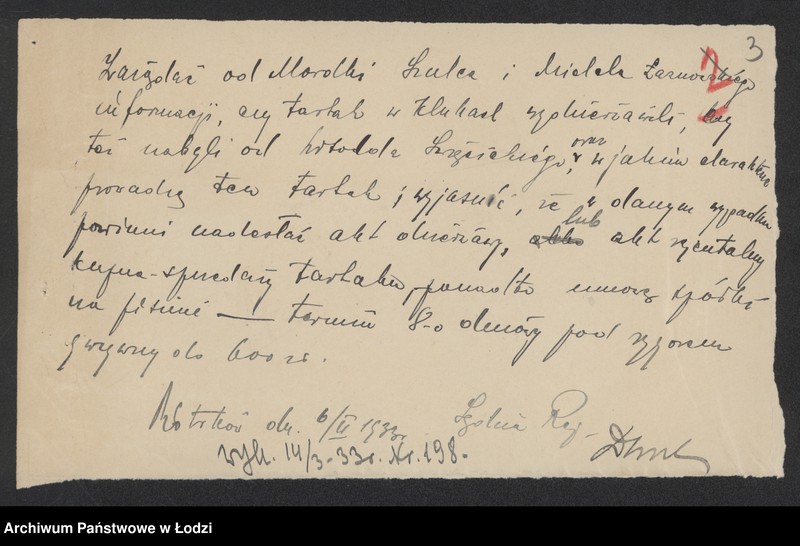 3
2
Zażądać od Mordki Szulca i Michela
informacji, czy tartak w Klukach wydzierżawili, czy
też nabyli od Witolda oraz w jakim charakterze
prowadzą ten tartak i wyjaśnić, że w danym wypadku
powinni nadesłać akt dzierżawy, albo lub akt rejentalny
kupna-sprzedaży tartaku, ponadto umowę spółki
na piśmie — termin 8-o dniowy pod rygorem
grzywny do 600 zł.
Piotrków dn. 6/II 1933 r. Sędzia Rej.
wyk. 14/3-33 r. Nr. 198.
Archiwum Państwowe w Łodzi